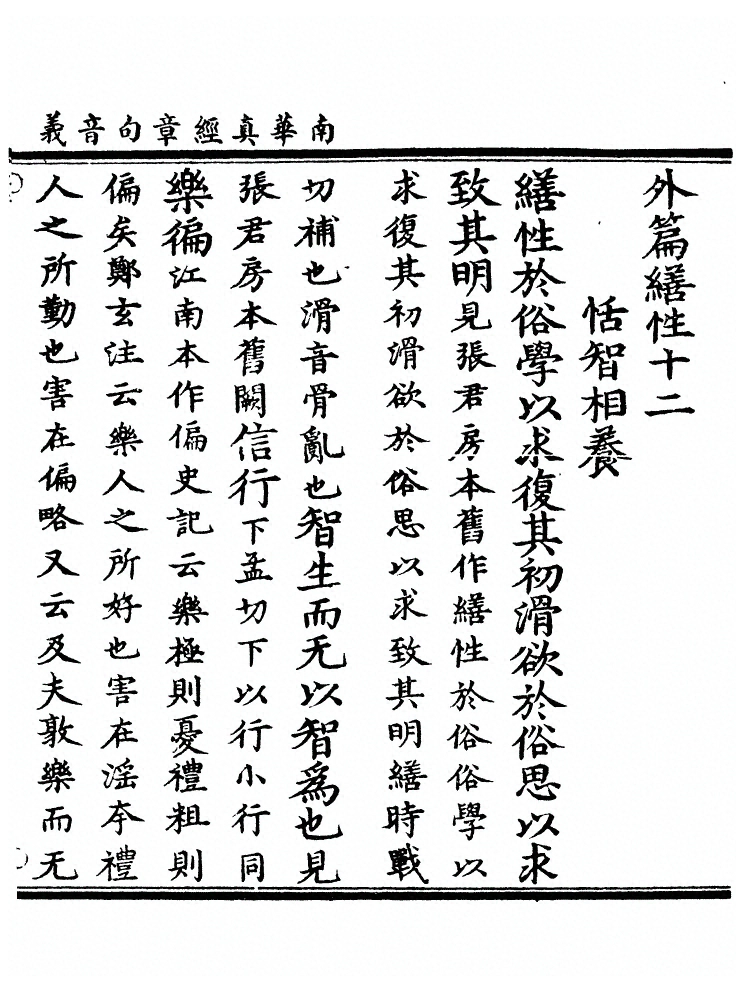 南華真經章句音義
外篇繕性十二
恬智相養
繕性於俗學以求復其初滑欲於俗思以求
致其明見張君房本舊作繕性於俗俗學以
求復其初滑欲於俗思以求致其明繕時戰
切補也滑音骨亂也智生而无以智爲也見
張君房本舊闕信行下孟切下以行小行同
樂徧江南本作偏史記云樂極則憂禮粗則
偏矣鄭玄注云樂人之所好也害在滛夲禮
人之所勤也害在偏略又云及夫敦樂而无